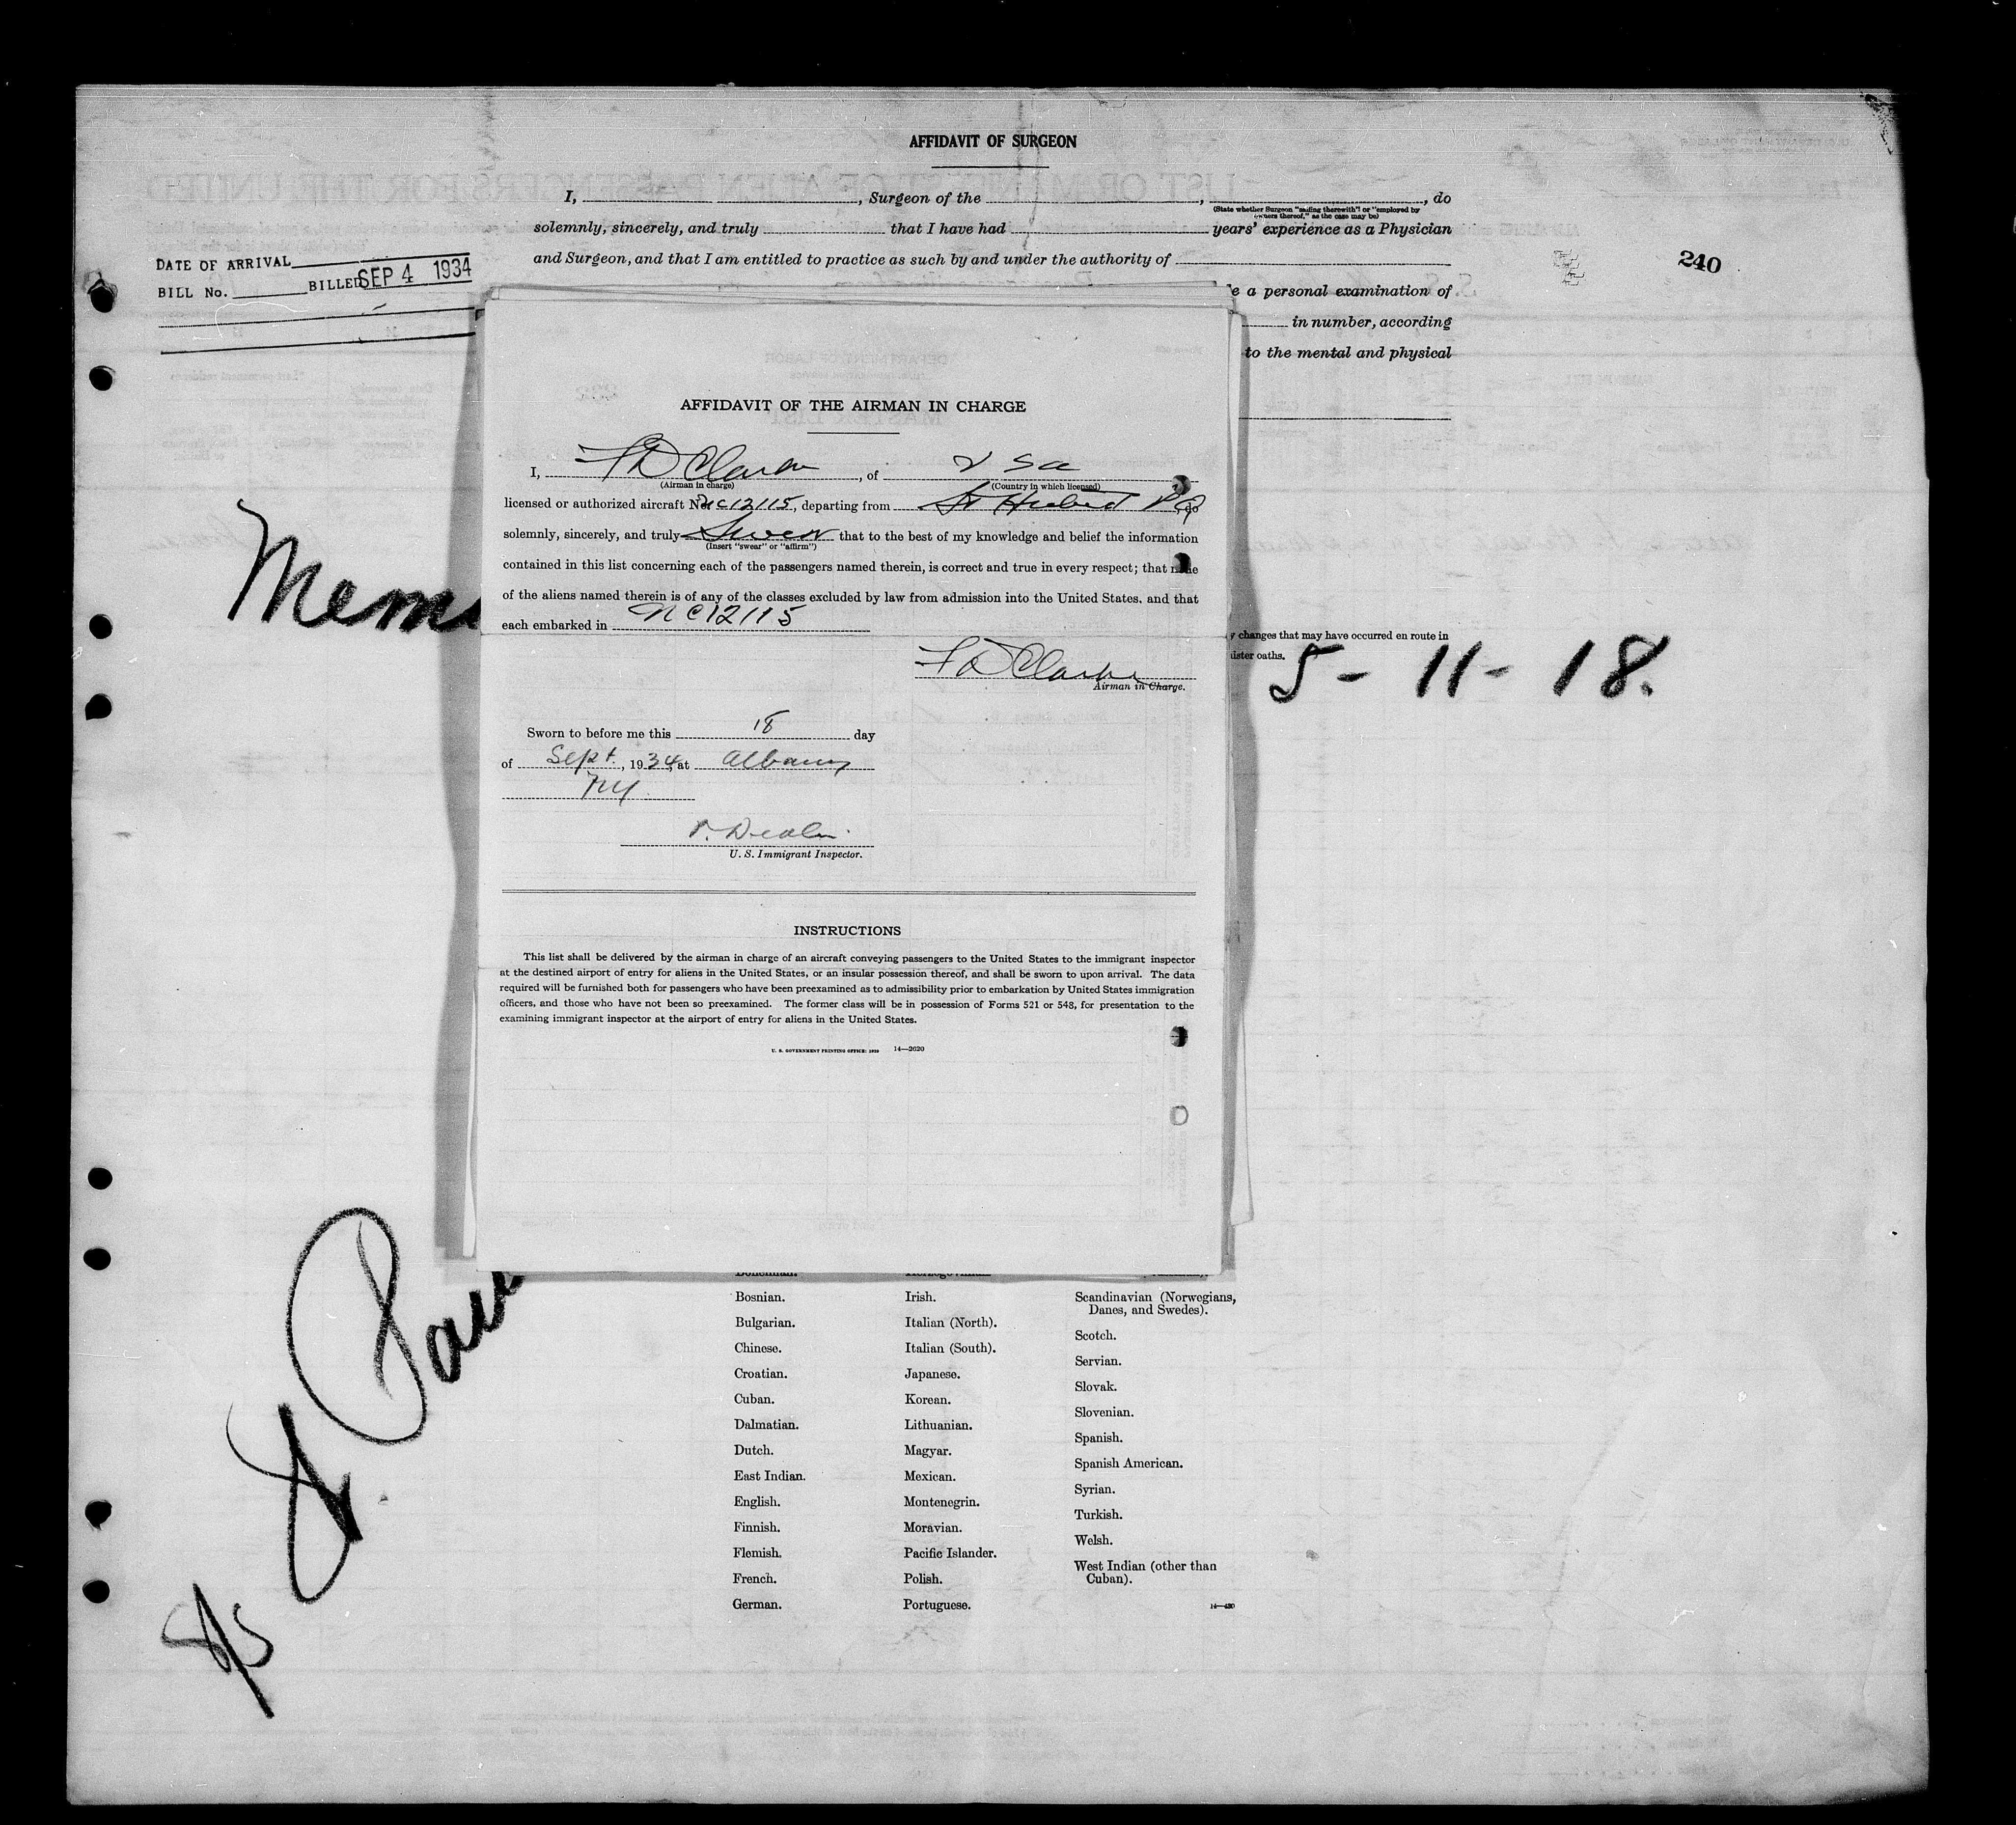 AFFIDAVIT OF SURGEON
I, , Surgeon of the , , do
(State whether Surgeon "sailing therewith" or "employed by
owners thereof," as the case may be)
solemnly, sincerely, and truly that I have had years' experience as a Physician
and Surgeon, and that I am entitled to practice as such by and under the authority of
DATE OF ARRIVAL
BILL No. BILLED SEP 4 1934
240
a personal examination of
in number, according
to the mental and physical
AFFIDAVIT OF THE AIRMAN IN CHARGE
I, F D Clarke, of U S a
(Airman in charge) (Country in which licensed)
licensed or authorized aircraft No. NC12115, departing from St Hubert P Q, do
solemnly, sincerely, and truly Swear that to the best of my knowledge and belief the information
(Insert "swear" or "affirm")
contained in this list concerning each of the passengers named therein, is correct and true in every respect; that none
of the aliens named therein is of any of the classes excluded by law from admission into the United States, and that
each embarked in NC12115
F D Clarke
Airman in Charge.
Mem
changes that may have occurred en route in
oaths.
5-11-18.
Sworn to before me this 18 day
of Sept., 1934, at Albany
NY
U. S. Immigrant Inspector.
INSTRUCTIONS
This list shall be delivered by the airman in charge of an aircraft conveying passengers to the United States to the immigrant inspector
at the destined airport of entry for aliens in the United States, or an insular possession thereof, and shall be sworn to upon arrival. The data
required will be furnished both for passengers who have been preexamined as to admissibility prior to embarkation by United States immigration
officers, and those who have not been so preexamined. The former class will be in possession of Forms 521 or 548, for presentation to the
examining immigrant inspector at the airport of entry for aliens in the United States.
U. S. GOVERNMENT PRINTING OFFICE: 1930 14—2620
S/S St Pau
Bohemian.
Bosnian.
Bulgarian.
Chinese.
Croatian.
Cuban.
Dalmatian.
Dutch.
East Indian.
English.
Finnish.
Flemish.
French.
German.
Irish.
Italian (North).
Italian (South).
Japanese.
Korean.
Lithuanian.
Magyar.
Mexican.
Montenegrin.
Moravian.
Pacific Islander.
Polish.
Portuguese.
Scandinavian (Norwegians,
Danes, and Swedes).
Scotch.
Servian.
Slovak.
Slovenian.
Spanish.
Spanish American.
Syrian.
Turkish.
Welsh.
West Indian (other than
Cuban).
14—430